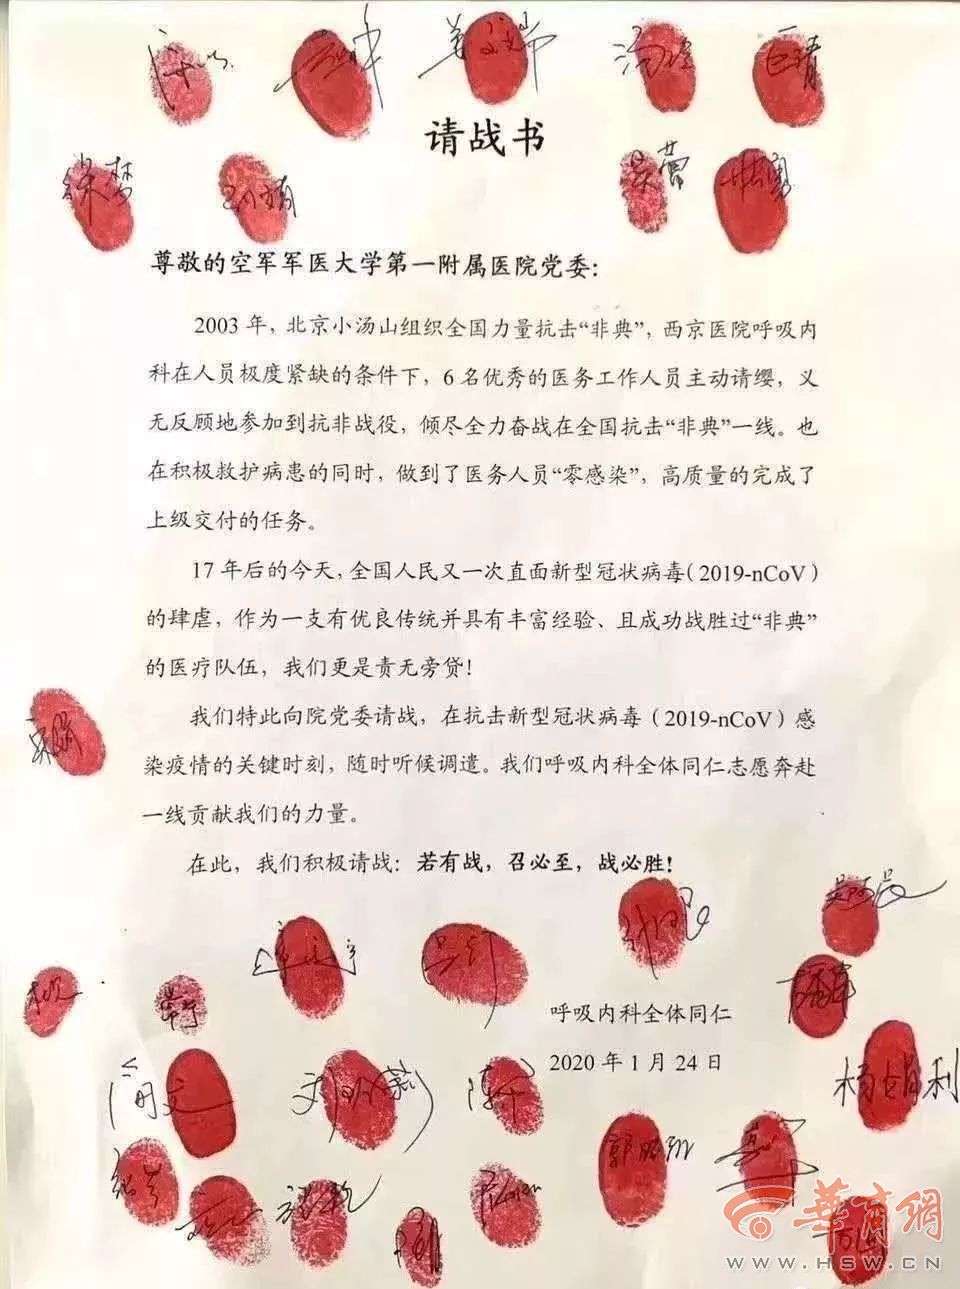 请战书
尊敬的空军军医大学第一附属医院党委：
2003 年，北京小汤山组织全国力量抗击“非典”，西京医院呼吸内
科在人员极度紧缺的条件下，6 名优秀的医务工作人员主动请缨，义
无反顾地参加到抗非战役，倾尽全力奋战在全国抗击“非典”一线。也
在积极救护病患的同时，做到了医务人员“零感染”，高质量的完成了
上级交付的任务。
17 年后的今天，全国人民又一次直面新型冠状病毒（2019-nCoV）
的肆虐，作为一支有优良传统并具有丰富经验、且成功战胜过“非典”
的医疗队伍，我们更是责无旁贷！
我们特此向院党委请战，在抗击新型冠状病毒（2019-nCoV）感
染疫情的关键时刻，随时听候调遣。我们呼吸内科全体同仁志愿奔赴
一线贡献我们的力量。
在此，我们积极请战：若有战，召必至，战必胜！
呼吸内科全体同仁
2020 年 1 月 24 日
華商網
WWW.HSW.CN